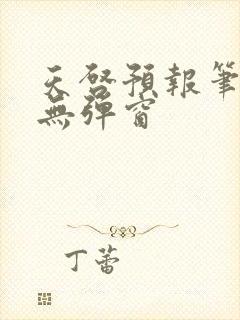 天啓預報筆
無彈窗
丁蕾